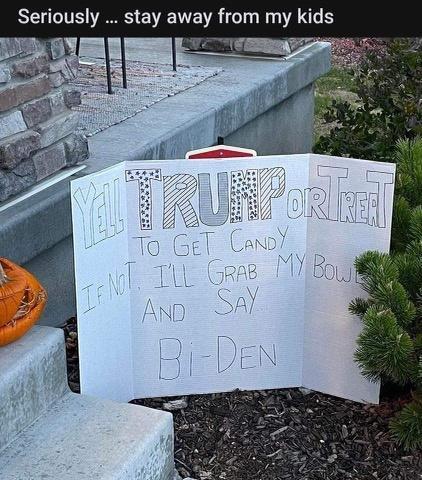 Seriously ... stay away from my kids
YELL TRUMP OR TREAT
TO GET CANDY
IF NOT, I'LL GRAB MY BOWL
AND SAY
Bi-DEN